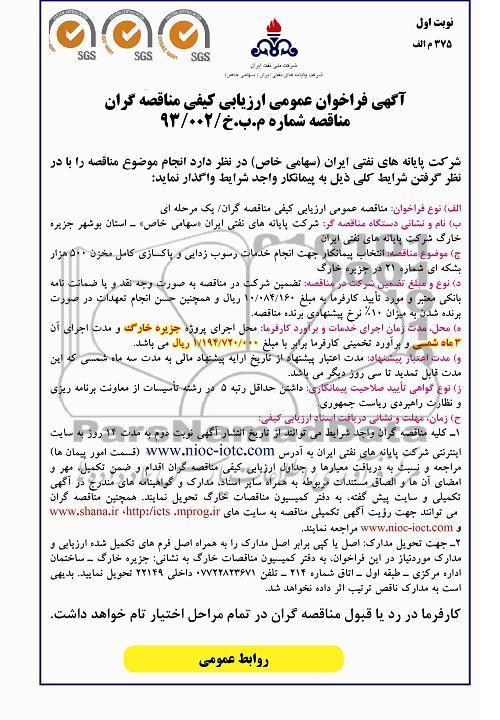 نوبت اول
۳۷۵ م الف
SGS
SGS
SGS
شرکت ملی نفت ایران
شرکت پایانه های نفتی ایران (سهامی خاص)
آگهی فراخوان عمومی ارزیابی کیفی مناقصه گران
مناقصه شماره م.ب.خ/۹۳/۰۰۲
شرکت پایانه های نفتی ایران (سهامی خاص) در نظر دارد انجام موضوع مناقصه را با در
نظر گرفتن شرایط کلی ذیل به پیمانکار واجد شرایط واگذار نماید:
الف) نوع فراخوان: مناقصه عمومی ارزیابی کیفی مناقصه گران/ یک مرحله ای
ب) نام و نشانی دستگاه مناقصه گر: شرکت پایانه های نفتی ایران «سهامی خاص» ــ استان بوشهر جزیره
خارگ شرکت پایانه های نفتی ایران
ج) موضوع مناقصه: انتخاب پیمانکار جهت انجام خدمات رسوب زدایی و پاکسازی کامل مخزن ۵۰۰ هزار
بشکه ای شماره ۲۱ در جزیره خارگ
د) نوع و مبلغ تضمین شرکت در مناقصه: تضمین شرکت در مناقصه به صورت وجه نقد و یا ضمانت نامه
بانکی معتبر و مورد تأیید کارفرما به مبلغ ۱۰/۰۸۴/۱۶۰ ریال و همچنین حسن انجام تعهدات در صورت
برنده شدن به میزان ۱۰٪ نرخ پیشنهادی برنده مناقصه.
ه) محل، مدت زمان اجرای خدمات و برآورد کارفرما: محل اجرای پروژه جزیره خارگ و مدت اجرای آن
۳ ماه شمسی و برآورد تخمینی کارفرما برابر با مبلغ ۱/۱۹۴/۷۲۰/۰۰۰ ریال می باشد.
و) مدت اعتبار پیشنهاد: مدت اعتبار پیشنهاد از تاریخ ارایه پیشنهاد مالی به مدت سه ماه شمسی که این
مدت قابل تمدید تا سی روز دیگر می باشد.
ز) نوع گواهی تأیید صلاحیت پیمانکاری: داشتن حداقل رتبه ۵ در رشته تأسیسات از معاونت برنامه ریزی
و نظارت راهبردی ریاست جمهوری.
ح) زمان، مهلت و نشانی دریافت اسناد ارزیابی کیفی:
۱ــ کلیه مناقصه گران واجد شرایط می توانند از تاریخ انتشار آگهی نوبت دوم به مدت ۱۴ روز به سایت
اینترنتی شرکت پایانه های نفتی ایران به آدرس www.nioc-iotc.com (قسمت امور پیمان ها)
مراجعه و نسبت به دریافت معیارها و جداول ارزیابی کیفی مناقصه گران اقدام و ضمن تکمیل، مهر و
امضای آن ها و الصاق مستندات مربوطه به همراه سایر اسناد، مدارک و گواهینامه های مندرج در آگهی
تکمیلی و سایت پیش گفته، به دفتر کمیسیون مناقصات خارگ تحویل نمایند. همچنین مناقصه گران
می توانند جهت رؤیت آگهی تکمیلی مناقصه به سایت های http://icts .mprog.ir، www.shana.ir
و www.nioc-ioct.com مراجعه نمایند.
۲ــ جهت تحویل مدارک: اصل یا کپی برابر اصل مدارک را به همراه اصل فرم های تکمیل شده ارزیابی و
مدارک موردنیاز در این فراخوان، به دفتر کمیسیون مناقصات خارگ به نشانی: جزیره خارگ ــ ساختمان
اداره مرکزی ــ طبقه اول ــ اتاق شماره ۲۱۴ ــ تلفن ۰۷۷۲۲۸۲۳۶۷۱ داخلی ۲۲۱۴۹ تحویل نمایند. بدیهی
است به مدارک ناقص ترتیب اثر داده نخواهد شد.
کارفرما در رد یا قبول مناقصه گران در تمام مراحل اختیار تام خواهد داشت.
روابط عمومی